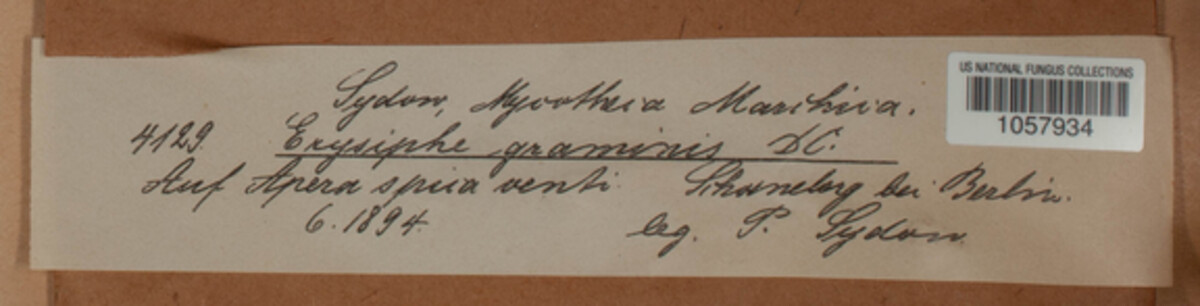 Sydow, Mycotheca Marchica.
4129. Erysiphe graminis DC.
Auf Apera spica venti. Schöneberg bei Berlin.
6. 1894. leg. P. Sydow.
US NATIONAL FUNGUS COLLECTIONS
1057934